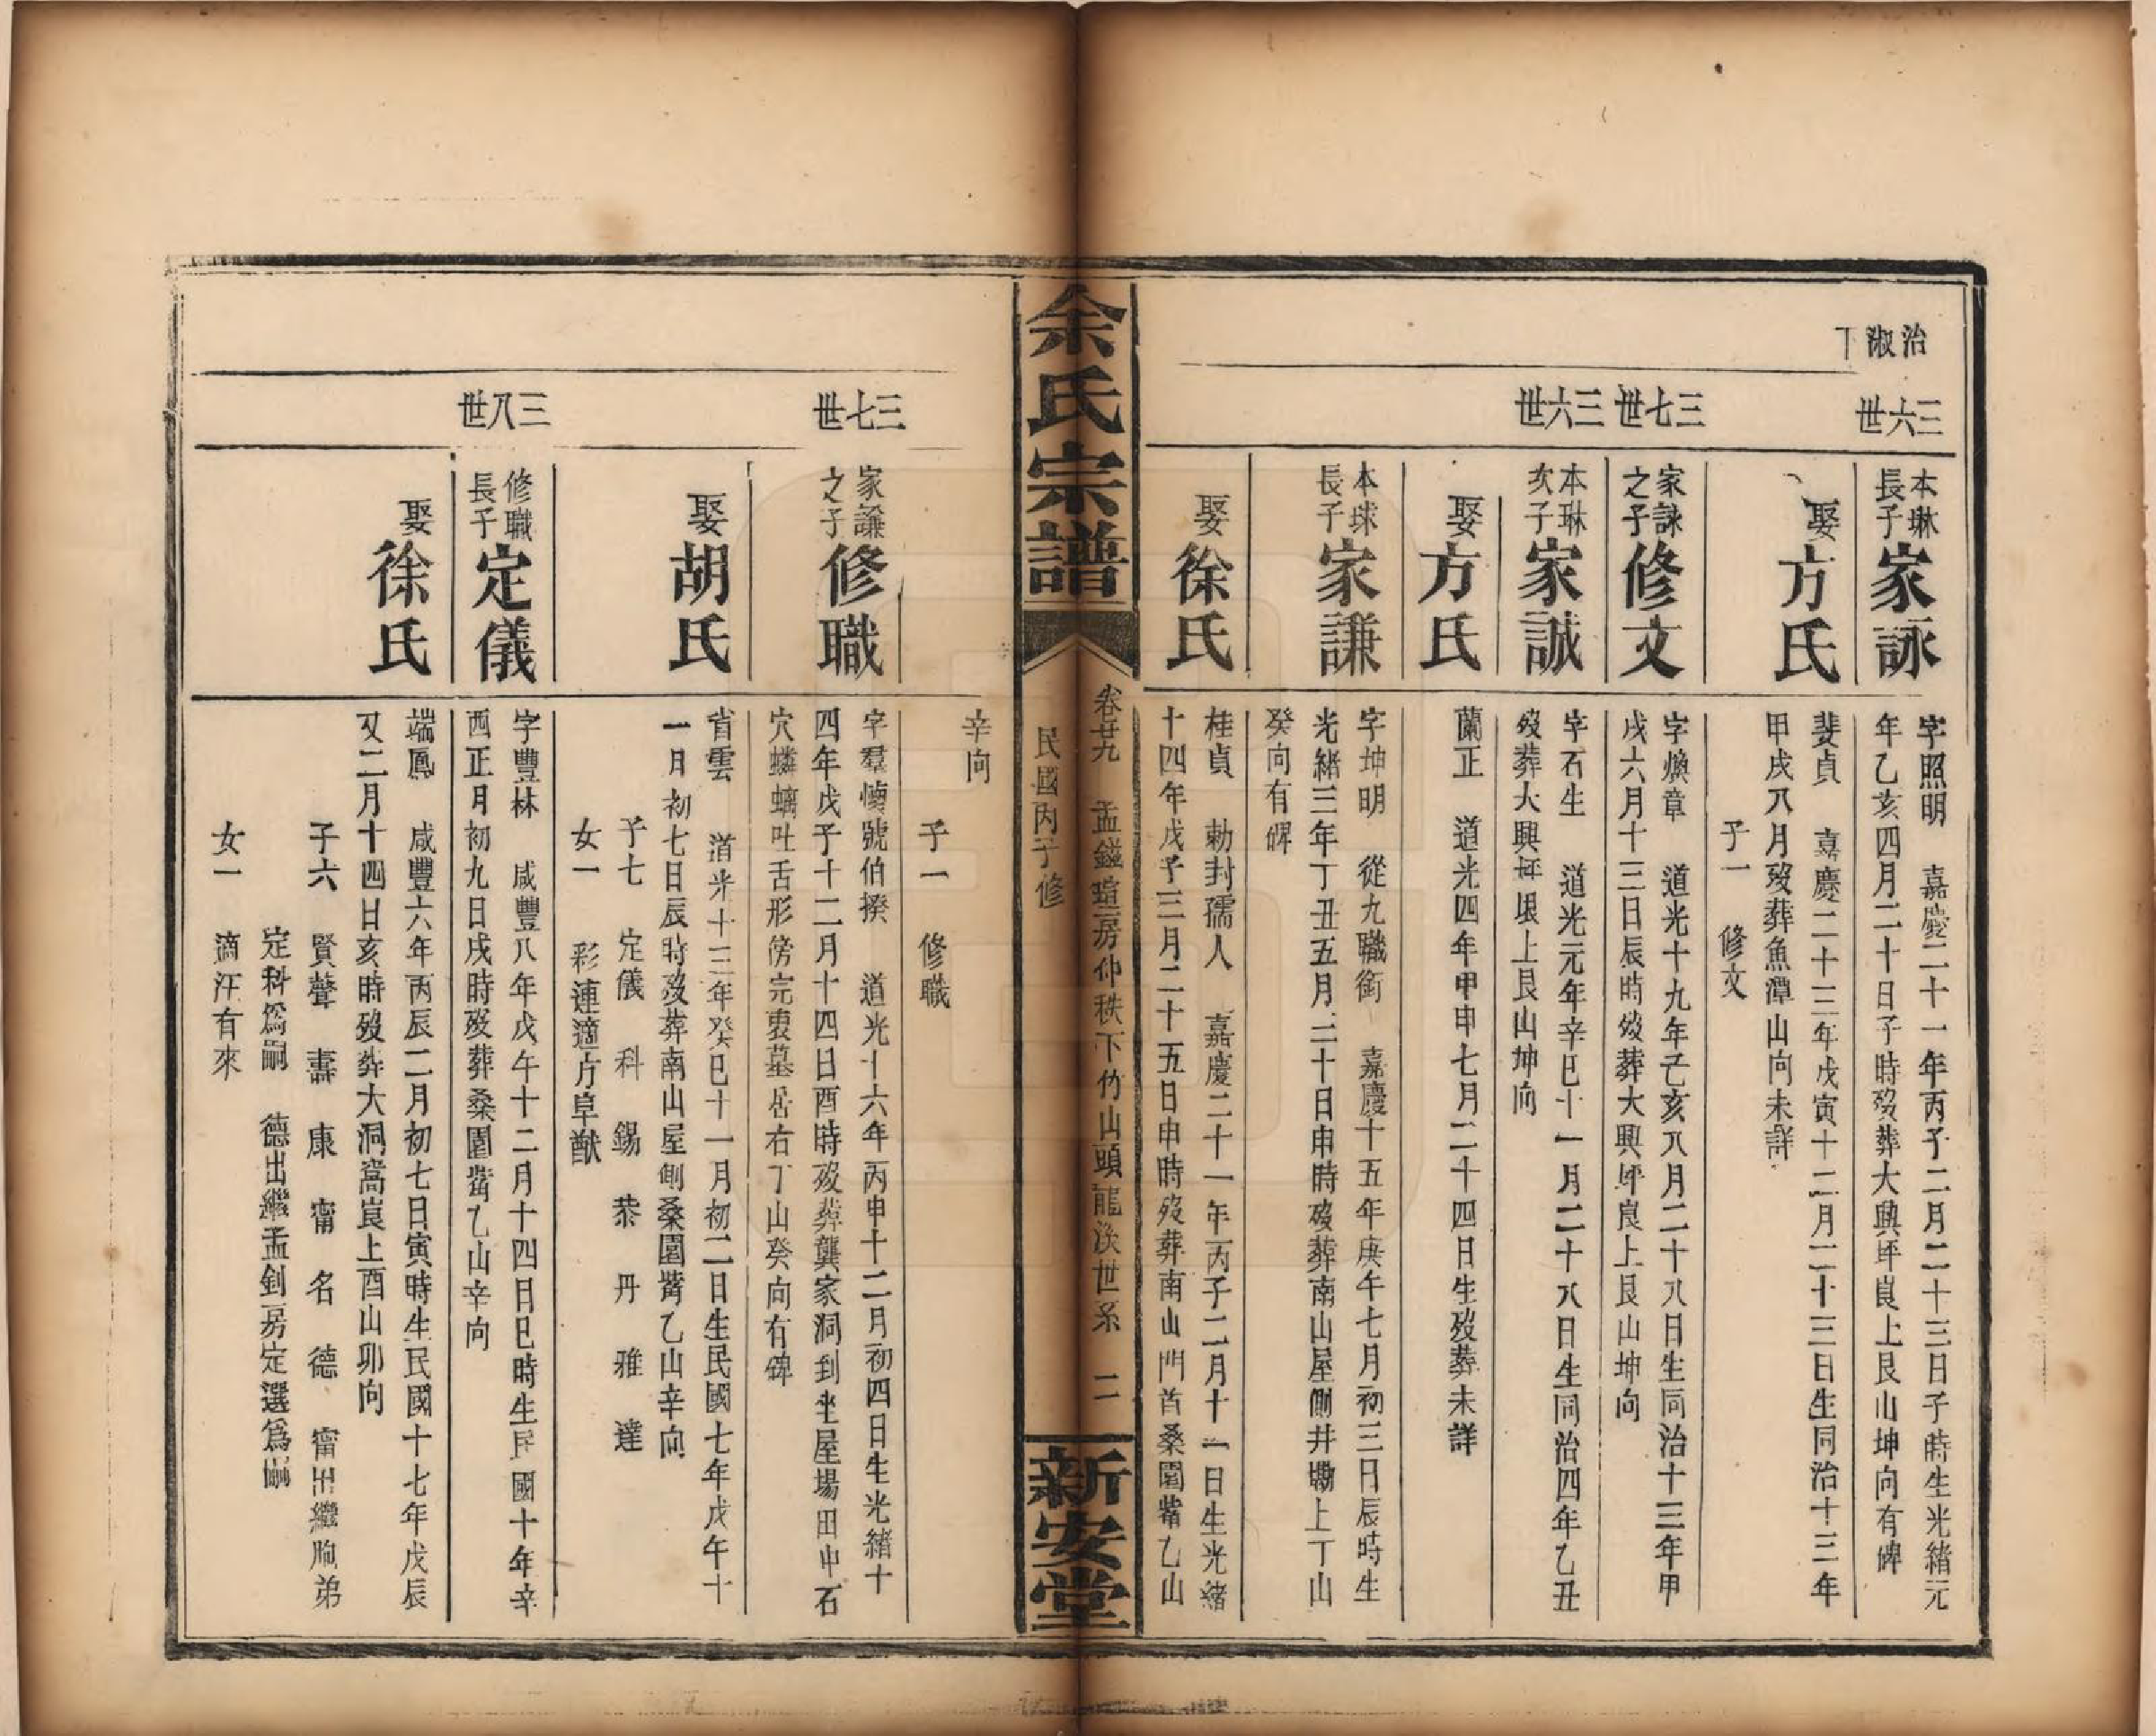 治淑丁
三六世
本琳長子
家詠
字照明　嘉慶二十一年丙子二月二十三日子時生光緒元
年乙亥四月二十日子時歿葬大興坪崀上艮山坤向有碑
娶方氏
斐貞　嘉慶二十三年戊寅十二月二十三日生同治十三年
甲戌八月歿葬魚潭山向未詳
子一　修文
三七世
家詠之子
修文
字煥章　道光十九年己亥八月二十八日生同治十三年甲
戌六月十三日辰時歿葬大興坪崀上艮山坤向
三六世
本琳次子
家誠
字石生　道光元年辛巳十一月二十八日生同治四年乙丑
歿葬大興坪垠上艮山坤向
娶方氏
蘭正　道光四年甲申七月二十四日生歿葬未詳
本球長子
家謙
字坤明　從九職銜　嘉慶十五年庚午七月初三日辰時生
光緒三年丁丑五月二十日申時歿葬南山屋側井墈上丁山
癸向有碑
娶徐氏
桂貞　勅封孺人　嘉慶二十一年丙子二月十一日生光緒
十四年戊子三月二十五日申時歿葬南山門首桑園觜乙山
余氏宗譜
卷廿九　孟鎰瑄房仲秩下竹山頭龍泱世系　二
民國丙子修
新安堂
辛向
子一　修職
三七世
家謙之子
修職
字羣懐號伯揆　道光十六年丙申十二月初四日生光緒十
四年戊子十二月十四日酉時歿葬龔家洞到坐屋場田中石
穴蟒蛇吐舌形傍完衷墓居右丁山癸向有碑
娶胡氏
省雲　道光十三年癸巳十一月初二日生民國七年戊午十
一月初七日辰時歿葬南山屋側桑園觜乙山辛向
子七　定儀　科　錫　恭　丹　雅　達
女一　彩連適方阜猷
三八世
修職長子
定儀
字豐林　咸豐八年戊午十二月十四日巳時生民國十年辛
酉正月初九日戌時歿葬桑園觜乙山辛向
娶徐氏
端鳳　咸豐六年丙辰二月初七日寅時生民國十七年戊辰
又二月十四日亥時歿葬大洞窩崀上酉山卯向
子六　賢聲　壽　康　甯　名　德　甯出繼胞弟
定科爲嗣　德出繼孟釗房定選爲嗣
女一　適汪有來